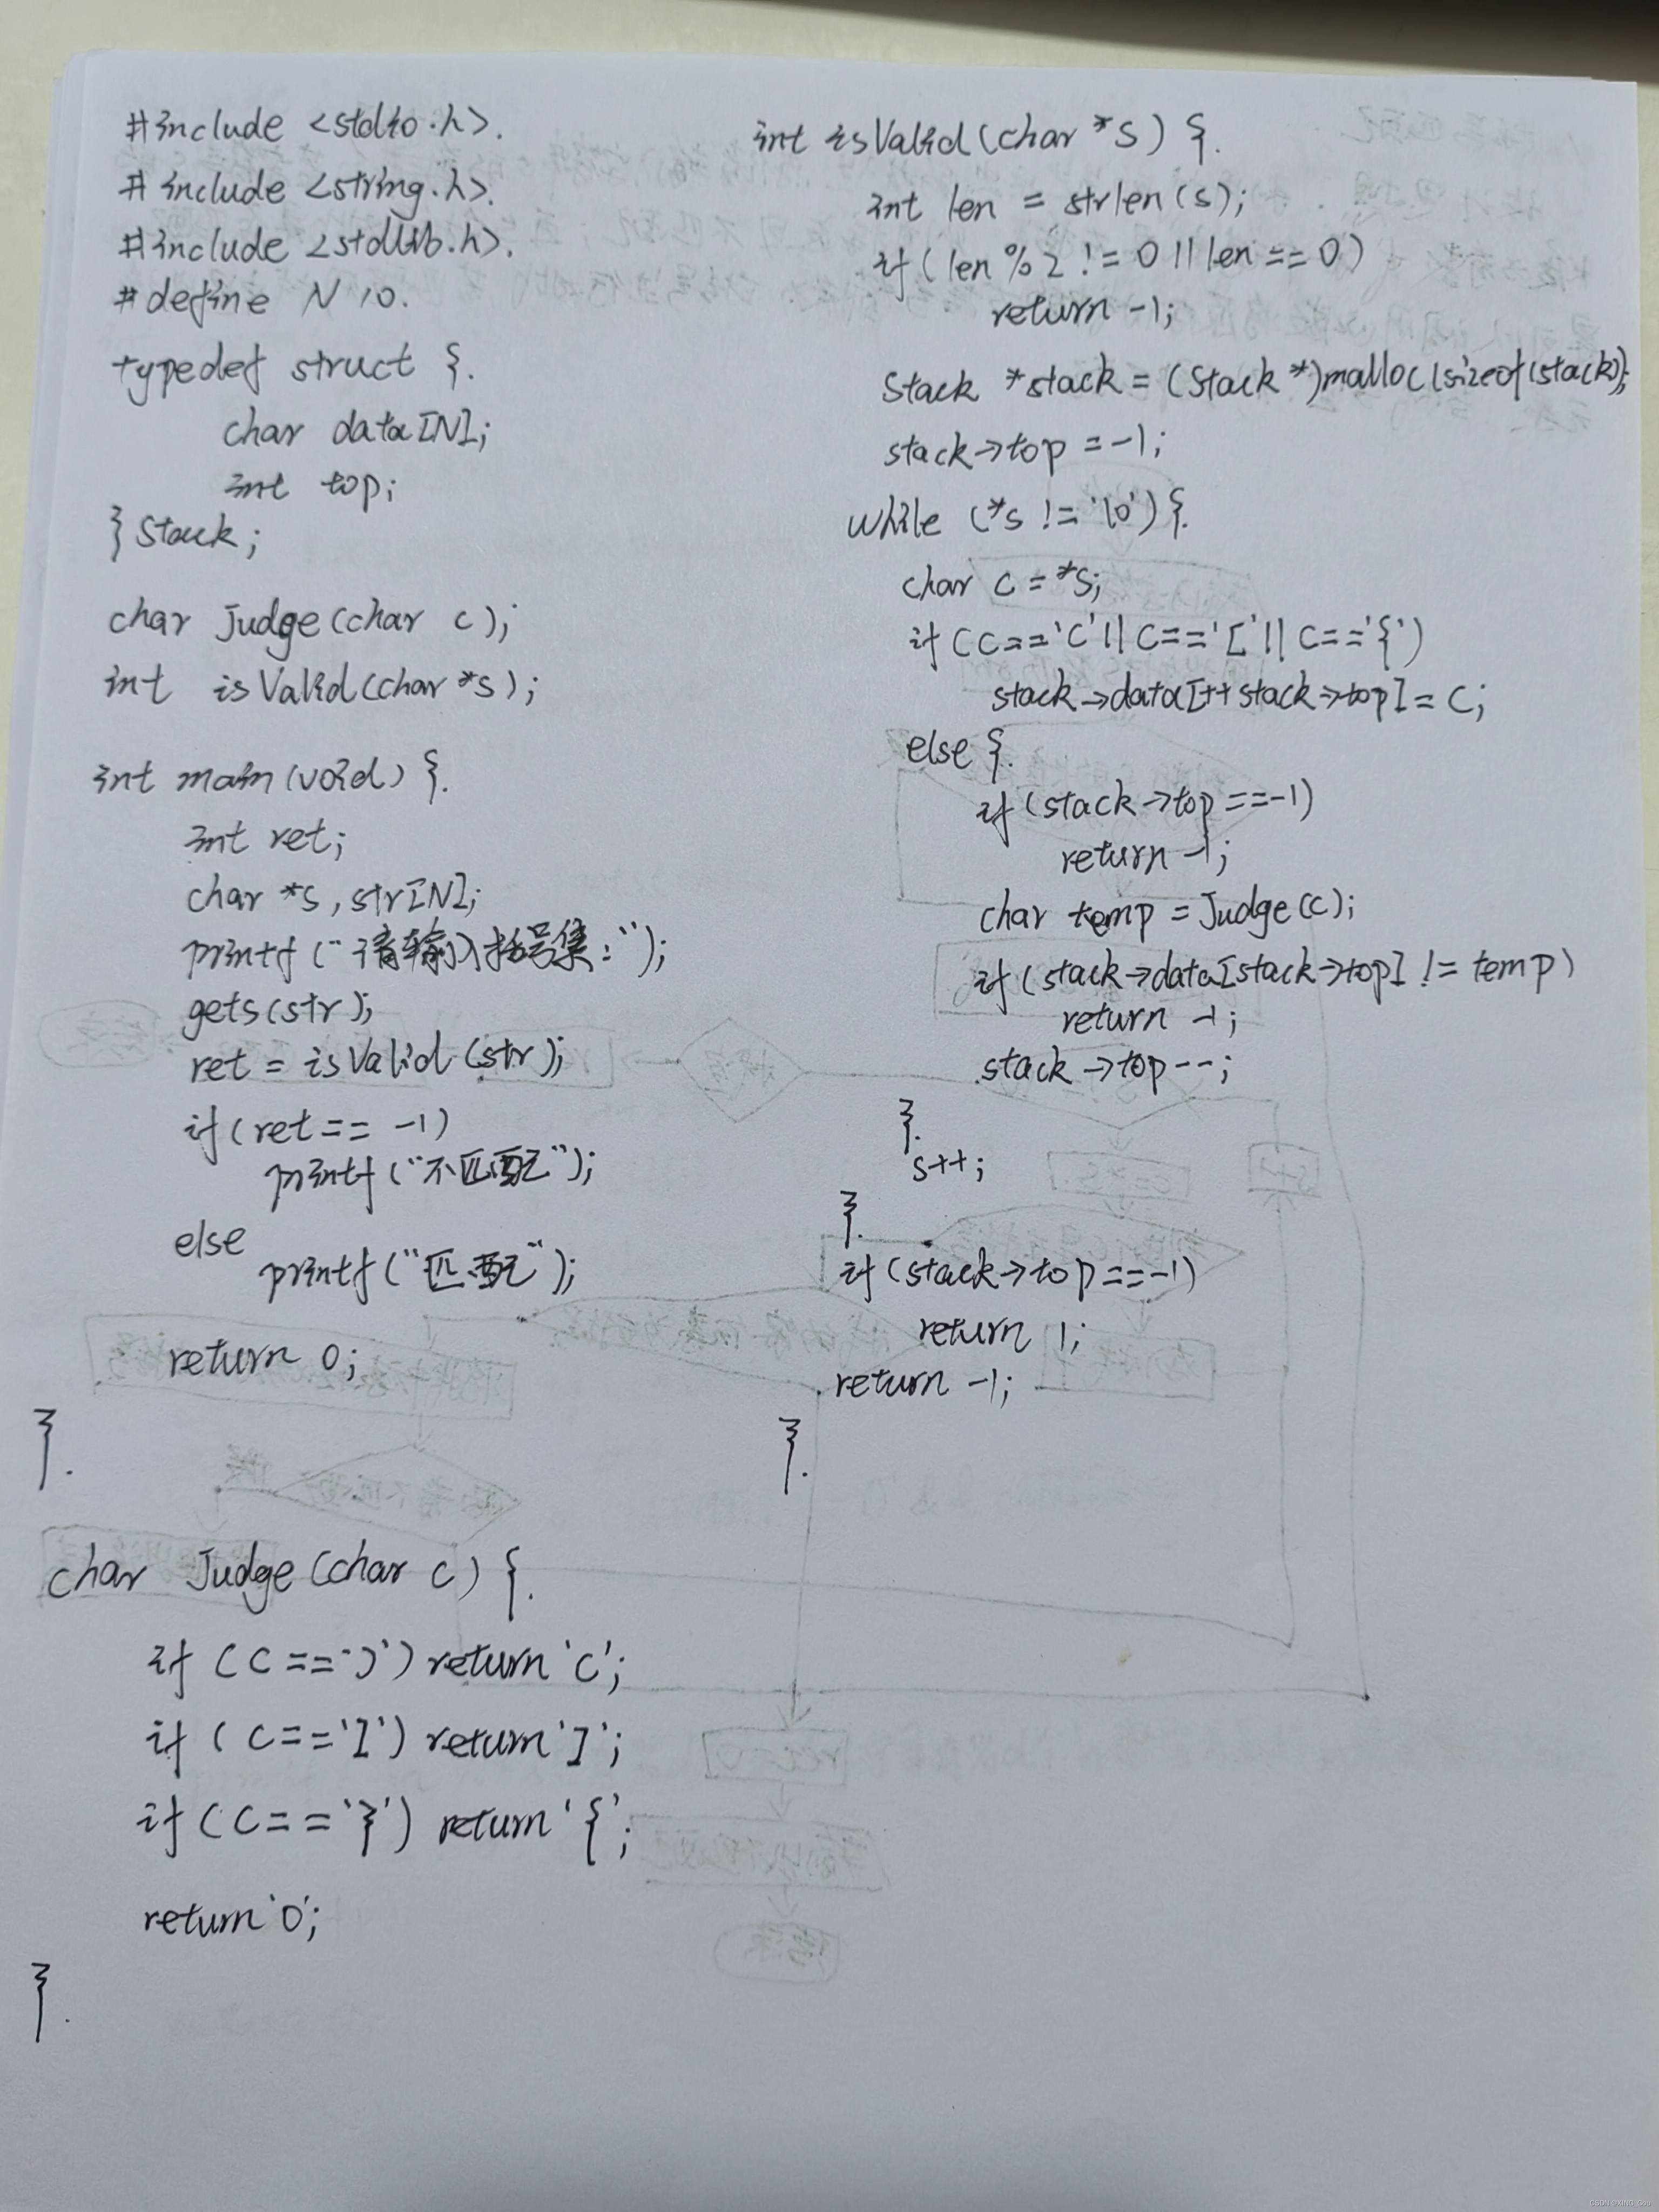 #include <stdio.h>.
#include <string.h>.
#include <stdlib.h>.
#define N 10.
typedef struct {.
char data[N];
int top;
} Stack;
char Judge(char c);
int isValid(char *s);
int main(void) {.
int ret;
char *s, str[N];
printf("请输入括号集:");
gets(str);
ret = isValid(str);
if(ret == -1)
printf("不匹配");
else
printf("匹配");
return 0;
}.
char Judge(char c) {.
if (c == ')') return '(';
if (c == '[') return ']';
if (c == '}') return '{';
return '0';
}.
int isValid(char *s) {.
int len = strlen(s);
if(len % 2 != 0 || len == 0)
return -1;
Stack *stack = (Stack *)malloc(sizeof(stack));
stack->top = -1;
while (*s != '\0') {.
char c = *s;
if (c == '(' || c == '[' || c == '{')
stack->data[++stack->top] = c;
else {.
if(stack->top == -1)
return -1;
char temp = Judge(c);
if(stack->data[stack->top] != temp)
return -1;
stack->top--;
}.
s++;
}.
if(stack->top == -1)
return 1;
return -1;
}.
CSDN @XING_Gou